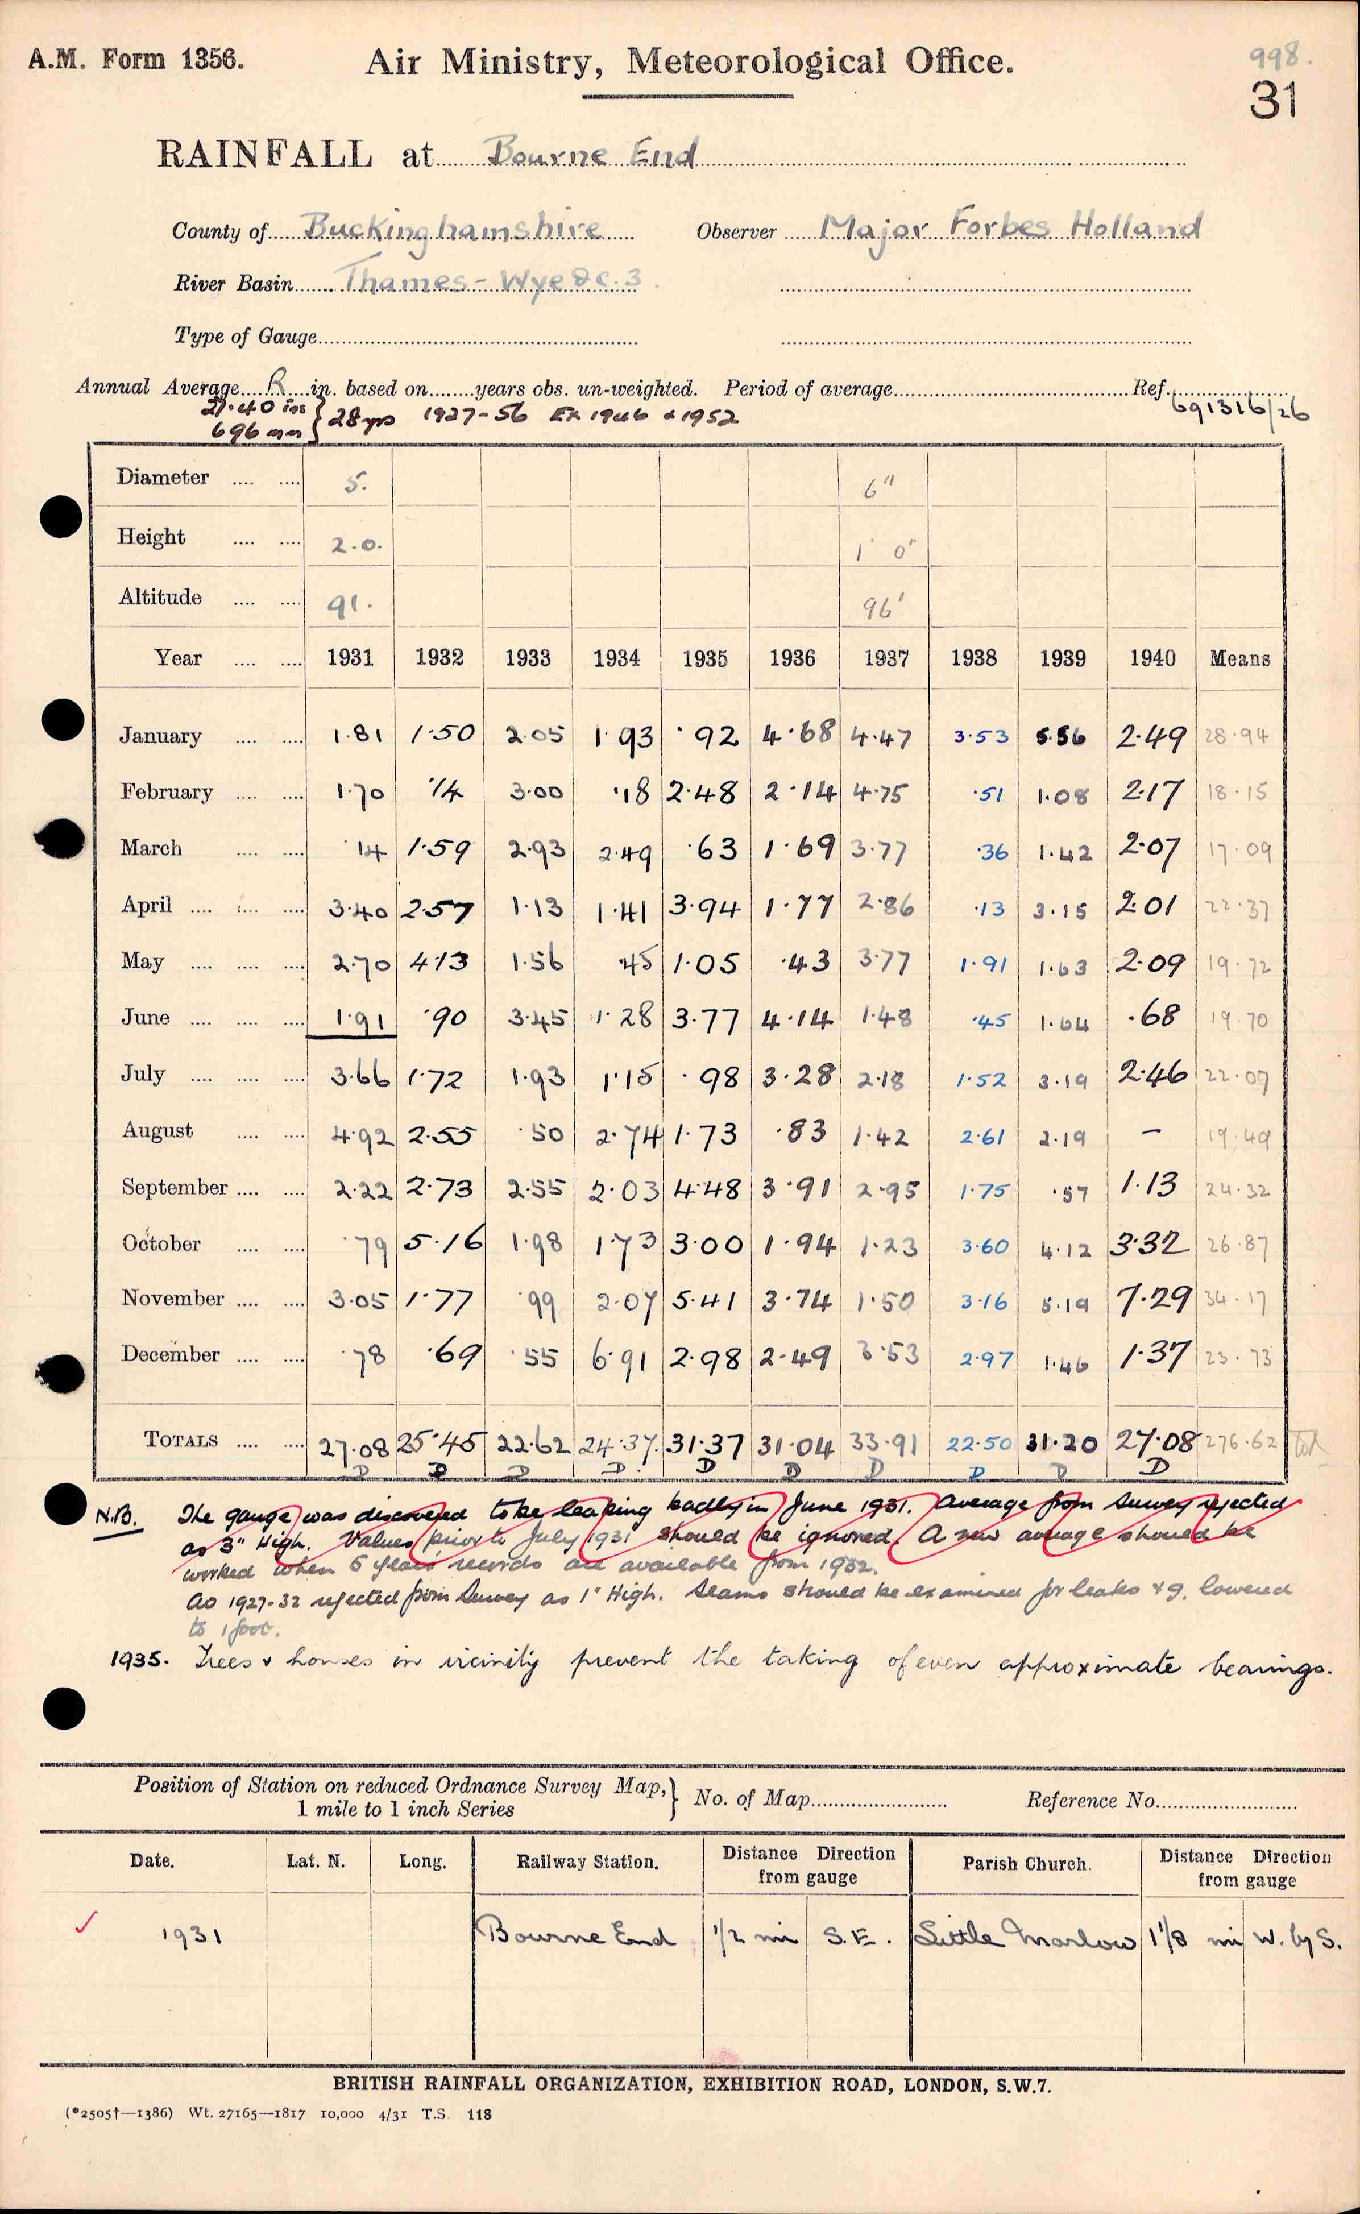 A.M. Form 1356.
Air Ministry, Meteorological Office.
998.
31
RAINFALL at Bourne End
County of Buckinghamshire Observer Major Forbes Holland
River Basin Thames - Wye &c. 3.
Type of Gauge
Annual Average R in. based on years obs. un-weighted. Period of average Ref. 691316/26
27.40 ins } 28 yrs 1927-56 Ex 1946 & 1952
696 mm
Diameter 5. 6"
Height 2.0. 1' 0"
Altitude 91. 96'
Year 1931 1932 1933 1934 1935 1936 1937 1938 1939 1940 Means
January 1.81 1.50 2.05 1.93 .92 4.68 4.47 3.53 5.56 2.49 28.94
February 1.70 .14 3.00 .18 2.48 2.14 4.75 .51 1.08 2.17 18.15
March .14 1.59 2.93 2.49 .63 1.69 3.77 .36 1.42 2.07 17.09
April 3.40 2.57 1.13 1.41 3.94 1.77 2.86 .13 3.15 2.01 22.37
May 2.70 4.13 1.56 .45 1.05 .43 3.77 1.91 1.63 2.09 19.72
June 1.91 .90 3.45 1.28 3.77 4.14 1.48 .45 1.64 .68 19.70
July 3.66 1.72 1.93 1.15 .98 3.28 2.18 1.52 3.19 2.46 22.07
August 4.92 2.55 .50 2.74 1.73 .83 1.42 2.61 2.19 - 19.49
September 2.22 2.73 2.55 2.03 4.48 3.91 2.95 1.75 .57 1.13 24.32
October .79 5.16 1.98 1.73 3.00 1.94 1.23 3.60 4.12 3.32 26.87
November 3.05 1.77 .99 2.07 5.41 3.74 1.50 3.16 5.19 7.29 34.17
December .78 .69 .55 6.91 2.98 2.49 3.53 2.97 1.46 1.37 23.73
TOTALS 27.08 25.45 22.62 24.37 31.37 31.04 33.91 22.50 31.20 27.08 276.62
D D D D D D D D D D
N.B. The gauge was discovered to be leaking badly in June 1931. Average from Survey rejected
as 3" High. Values prior to July 1931 should be ignored. A new average should be
worked when 5 years records are available from 1932.
Av 1927-32 rejected from Survey as 1" High. Seams should be examined for leaks & g. lowered
to 1 foot.
1935. Trees & houses in vicinity prevent the taking of even approximate bearings.
Position of Station on reduced Ordnance Survey Map, } No. of Map Reference No.
1 mile to 1 inch Series
Date. Lat. N. Long. Railway Station. Distance Direction from gauge Parish Church. Distance Direction from gauge
1931 Bourne End 1/2 mi S.E. Little Marlow 1 1/8 mi W. by S.
BRITISH RAINFALL ORGANIZATION, EXHIBITION ROAD, LONDON, S.W.7.
(*2505†—1386) Wt. 27165—1817 10,000 4/31 T.S. 118